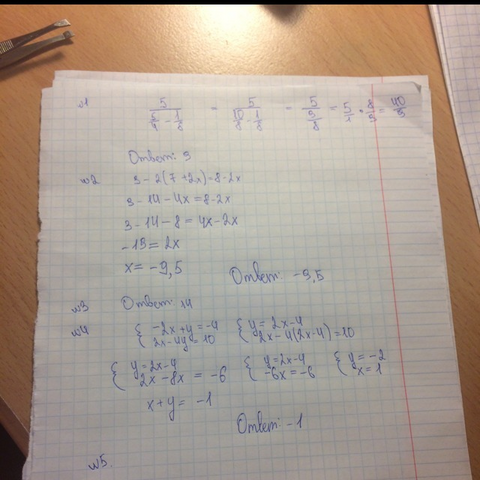 №1 5/(5/4 - 1/8) = 5/(10/8 - 1/8) = 5/(9/8) = 5/1 * 8/9 = 40/9
Ответ: 9
№2 3-2(7+2x)=8-2x
3-14-4x=8-2x
3-14-8=4x-2x
-19=2x
x=-9,5
Ответ: -9,5
№3 Ответ: 14
№4 { -2x+y=-4 { y=2x-4
2x-4y=10 2x-4(2x-4)=10
{ y=2x-4 { y=2x-4 { y=-2
2x-8x=-6 -6x=-6 x=1
x+y=-1
Ответ: -1
№5.